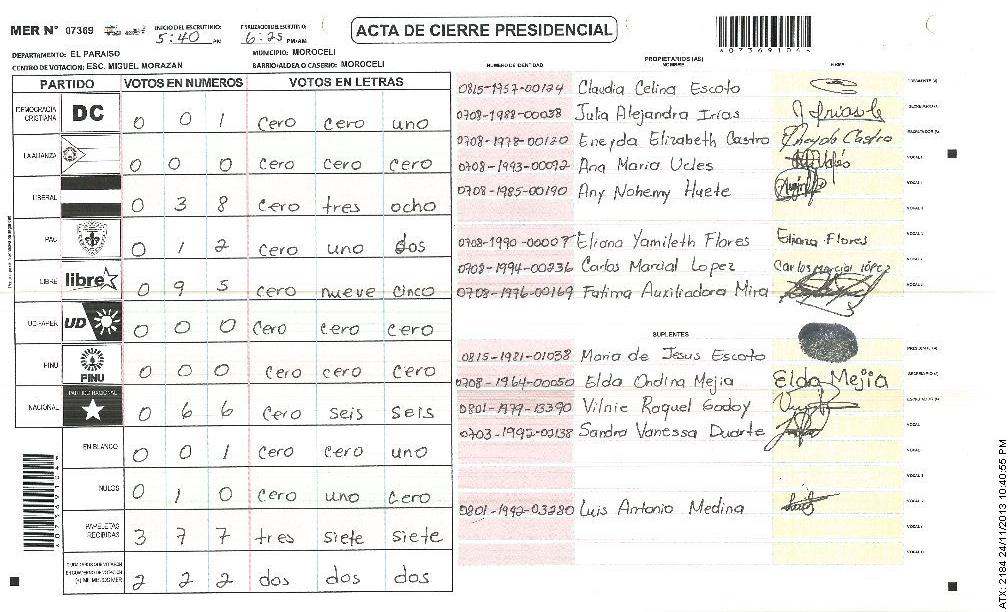 MER N° 07369
INICIO DEL ESCRUTINIO: 5:40 PM
FINALIZACION DEL ESCRUTINIO: 6:25 PM/AM
ACTA DE CIERRE PRESIDENCIAL
DEPARTAMENTO: EL PARAISO
MUNICIPIO: MOROCELI
CENTRO DE VOTACION: ESC. MIGUEL MORAZAN
BARRIO/ALDEA O CASERIO: MOROCELI
PARTIDO VOTOS EN NUMEROS VOTOS EN LETRAS
DEMOCRACIA CRISTIANA DC 0 0 1 cero cero uno
LA ALIANZA 0 0 0 cero cero cero
LIBERAL 0 3 8 cero tres ocho
PAC 0 1 2 cero uno dos
LIBRE libre 0 9 5 cero nueve cinco
UD-FAPER UD 0 0 0 cero cero cero
PINU PINU 0 0 0 cero cero cero
NACIONAL PARTIDO NACIONAL 0 6 6 cero seis seis
EN BLANCO 0 0 1 cero cero uno
NULOS 0 1 0 cero uno cero
PAPELETAS RECIBIDAS 3 7 7 tres siete siete
2 2 2 dos dos dos
NUMERO DE IDENTIDAD PROPIETARIOS (AS) NOMBRE FIRMA
0815-1957-00124 Claudia Celina Escoto
0708-1988-00038 Julia Alejandra Irías
0708-1978-00120 Eneyda Elizabeth Castro Eneyda Castro
0708-1993-00092 Ana Maria Ucles
0708-1985-00190 Any Nohemy Huete
0708-1990-00007 Eliana Yamileth Flores Eliana Flores
0708-1994-00236 Carlos Marcial Lopez Carlos Marcial López
0708-1976-00169 Fatima Auxiliadora Mira
SUPLENTES
0815-1981-01038 Maria de Jesus Escoto
0708-1964-00050 Elda Ondina Mejia Elda Mejia
0801-1979-13390 Vilnie Raquel Godoy
0703-1992-02138 Sandra Vanessa Duarte
0801-1992-03280 Luis Antonio Medina
ATX: 2184 24/11/2013 10:40:55 PM